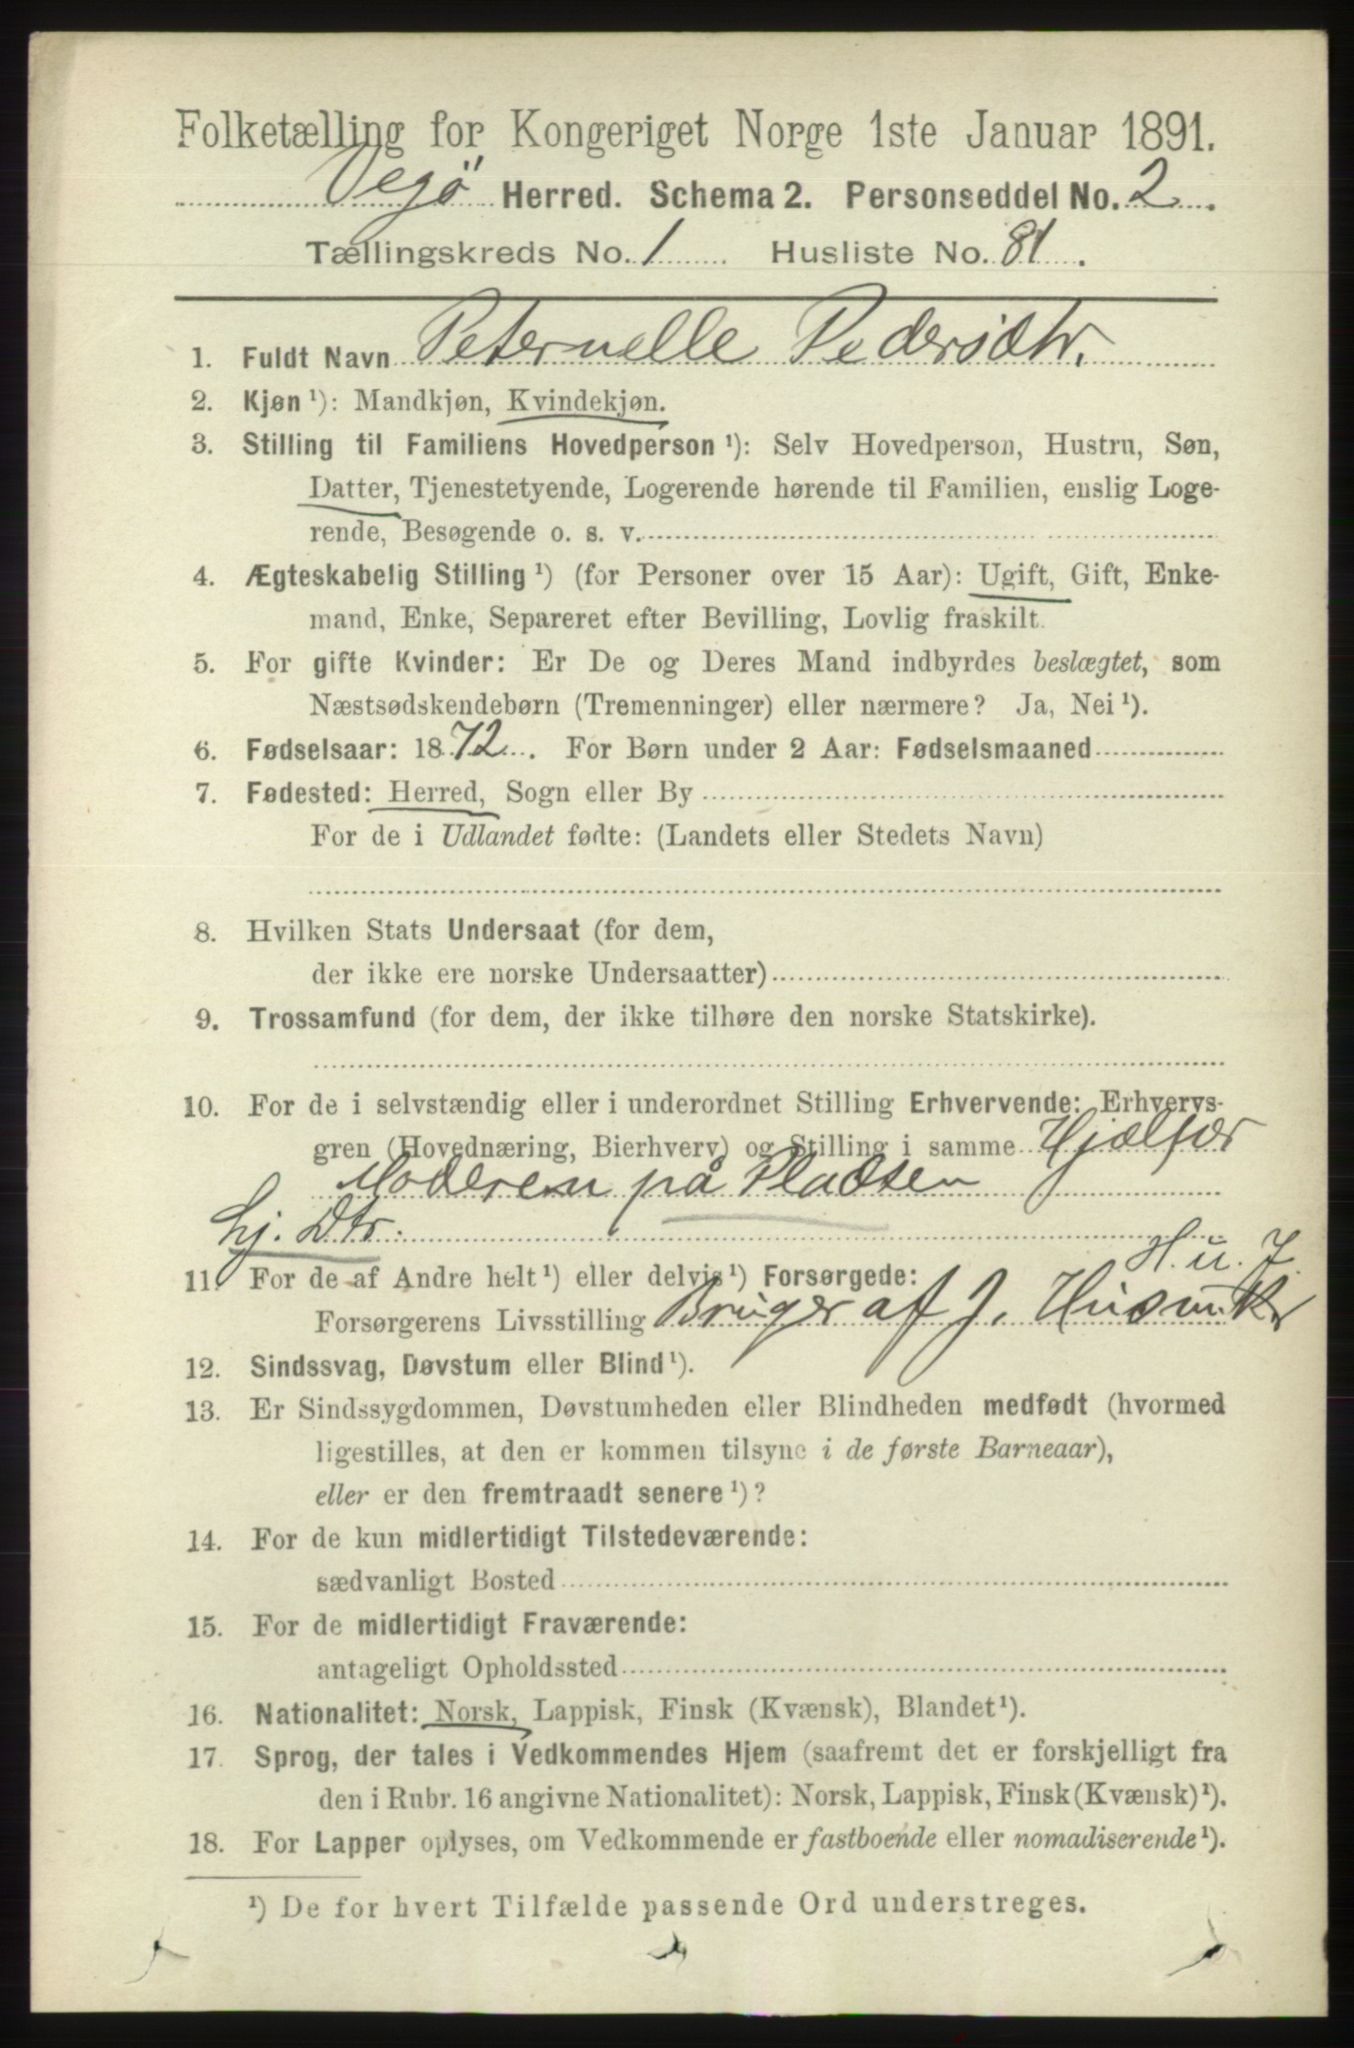 Folketælling for Kongeriget Norge 1ste Januar 1891.
Vegø Herred. Schema 2. Personseddel No. 2.
Tællingskreds No. 1 Husliste No. 81.
1. Fuldt Navn Peternelle Pedersdtr.
2. Kjøn ¹): Mandkjøn, Kvindekjøn.
3. Stilling til Familiens Hovedperson ¹): Selv Hovedperson, Hustru, Søn,
Datter, Tjenestetyende, Logerende hørende til Familien, enslig Loge-
rende, Besøgende o. s. v.
4. Ægteskabelig Stilling ¹) (for Personer over 15 Aar): Ugift, Gift, Enke-
mand, Enke, Separeret efter Bevilling, Lovlig fraskilt.
5. For gifte Kvinder: Er De og Deres Mand indbyrdes beslægtet, som
Næstsødskendebørn (Tremenninger) eller nærmere? Ja, Nei ¹).
6. Fødselsaar: 1872. For Børn under 2 Aar: Fødselsmaaned
7. Fødested: Herred, Sogn eller By
For de i Udlandet fødte: (Landets eller Stedets Navn)
8. Hvilken Stats Undersaat (for dem,
der ikke ere norske Undersaatter)
9. Trossamfund (for dem, der ikke tilhøre den norske Statskirke).
10. For de i selvstændig eller i underordnet Stilling Erhvervende: Erhvervs-
gren (Hovednæring, Bierhverv) og Stilling i samme Hjælper
Moderen på Pladsen
hj. Dtr.
H. u. J.
11. For de af Andre helt ¹) eller delvis ¹) Forsørgede:
Forsørgerens Livsstilling Bruger af J. Husm.
12. Sindssvag, Døvstum eller Blind ¹).
13. Er Sindssygdommen, Døvstumheden eller Blindheden medfødt (hvormed
ligestilles, at den er kommen tilsyne i de første Barneaar),
eller er den fremtraadt senere ¹)?
14. For de kun midlertidigt Tilstedeværende:
sædvanligt Bosted
15. For de midlertidigt Fraværende:
antageligt Opholdssted
16. Nationalitet: Norsk, Lappisk, Finsk (Kvænsk), Blandet ¹).
17. Sprog, der tales i Vedkommendes Hjem (saafremt det er forskjelligt fra
den i Rubr. 16 angivne Nationalitet): Norsk, Lappisk, Finsk (Kvænsk) ¹).
18. For Lapper oplyses, om Vedkommende er fastboende eller nomadiserende ¹).
¹) De for hvert Tilfælde passende Ord understreges.